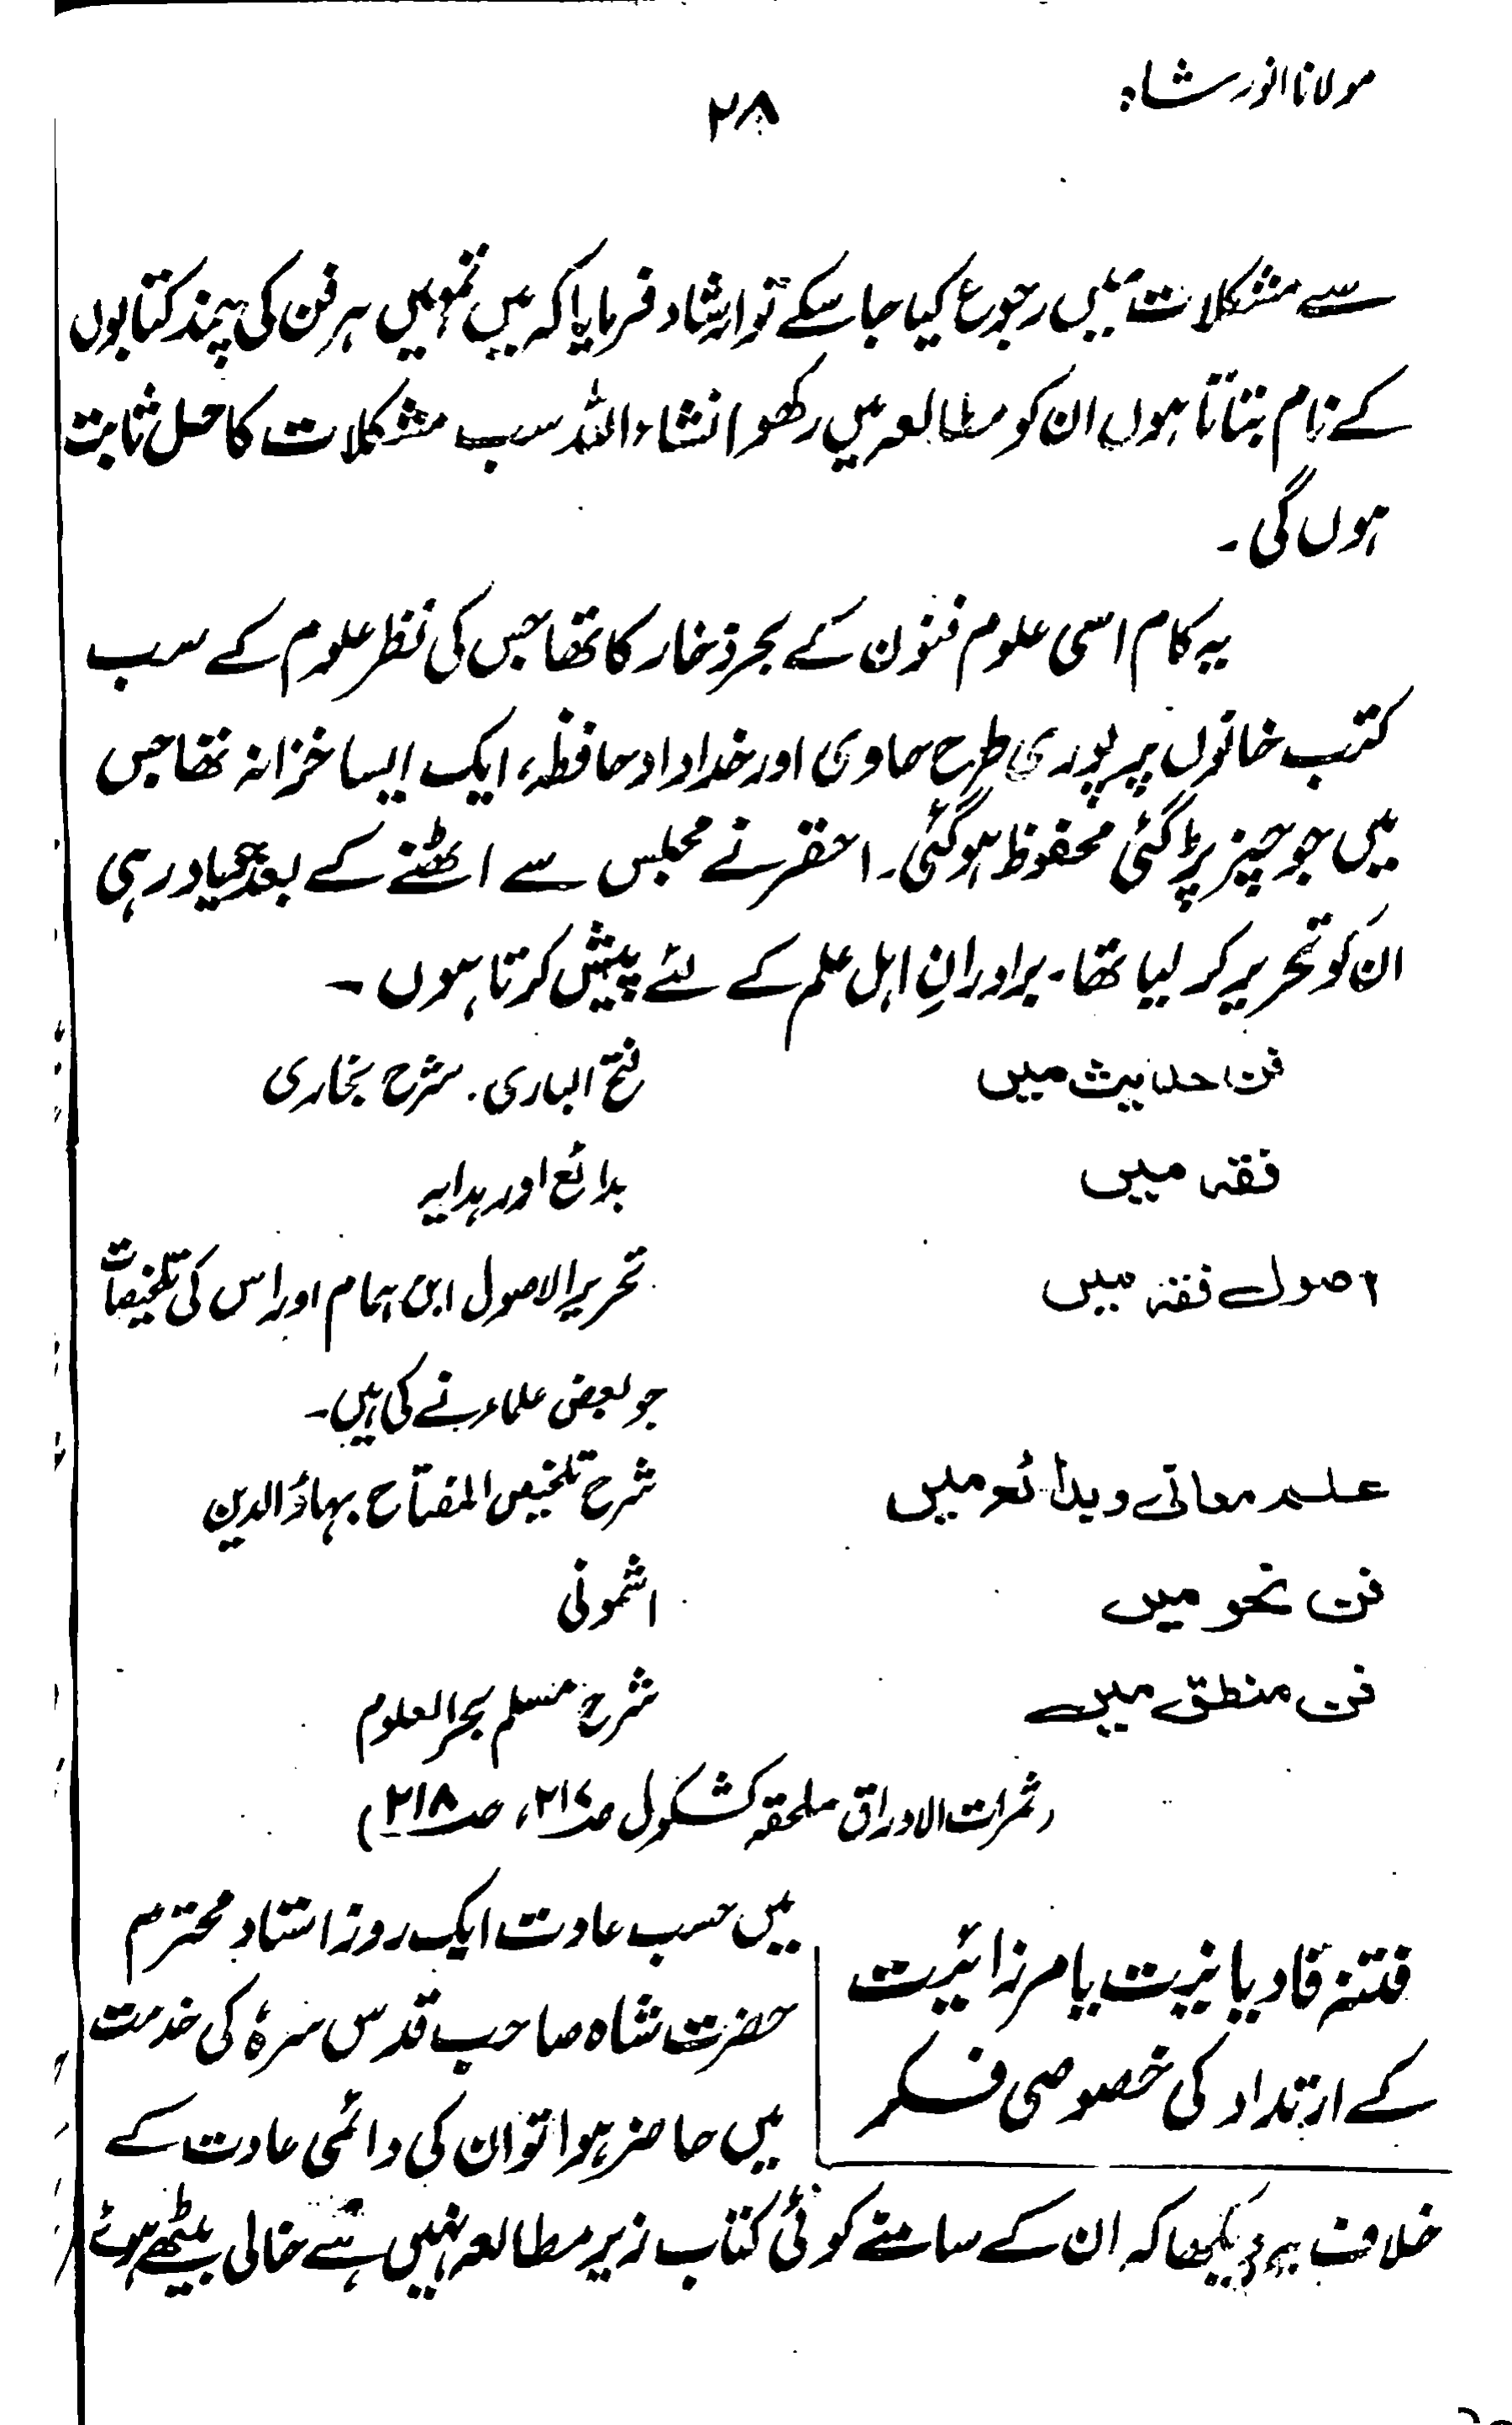 مولانا انور شاہ
۲۸
سے مشکلات میں رجوع کیا جا سکے تو ارشاد فرمایا کہ میں تمہیں ہر فن کی چند کتابوں
کے نام بتاتا ہوں ان کو مطالعہ میں رکھو انشاء اللہ سب مشکلات کا حل ثابت
ہوں گی ۔
یہ کام اسی علوم فنون کے بحر ذخار کا تھا جس کی نظر علوم کے سب
کتب خانوں پر پوری طرح حاوی اور خداداد حافظہ، ایک ایسا خزانہ تھا جس
میں جو چیز پڑ گئی محفوظ ہو گئی۔ احقر نے مجلس سے اٹھنے کے بعد جو یاد رہی
ان کو تحریر کر لیا تھا۔ برادرانِ اہل علم کے لئے پیش کرتا ہوں ۔
فن حدیث میں فتح الباری۔ شرح بخاری
فقہ میں بدائع اور ہدایہ
اصول فقہ میں تحریر الاصول ابن ہمام اور اس کی تلخیصات
جو بعض علماء نے کی ہیں۔
علم معانی و بدائع میں شرح تلخیص المفتاح بہاؤ الدین
فن نحو میں اشمونی
فن منطق میں شرح مسلم بحر العلوم
(ثمرات الاوراق ملحقہ کشکول صـ۲۱۷، صـ۲۱۸)
فتنہ قادیانیت یا مرزائیت
کے ارتداد کی خصوصی فکر
میں حسب عادت ایک روز استاد محترم
حضرت شاہ صاحب قدس سرہٗ کی خدمت
میں حاضر ہوا تو ان کی دائمی عادت کے
خلاف یہ دیکھا کہ ان کے سامنے کوئی کتاب زیر مطالعہ نہیں ہے خالی بیٹھے ہوئے